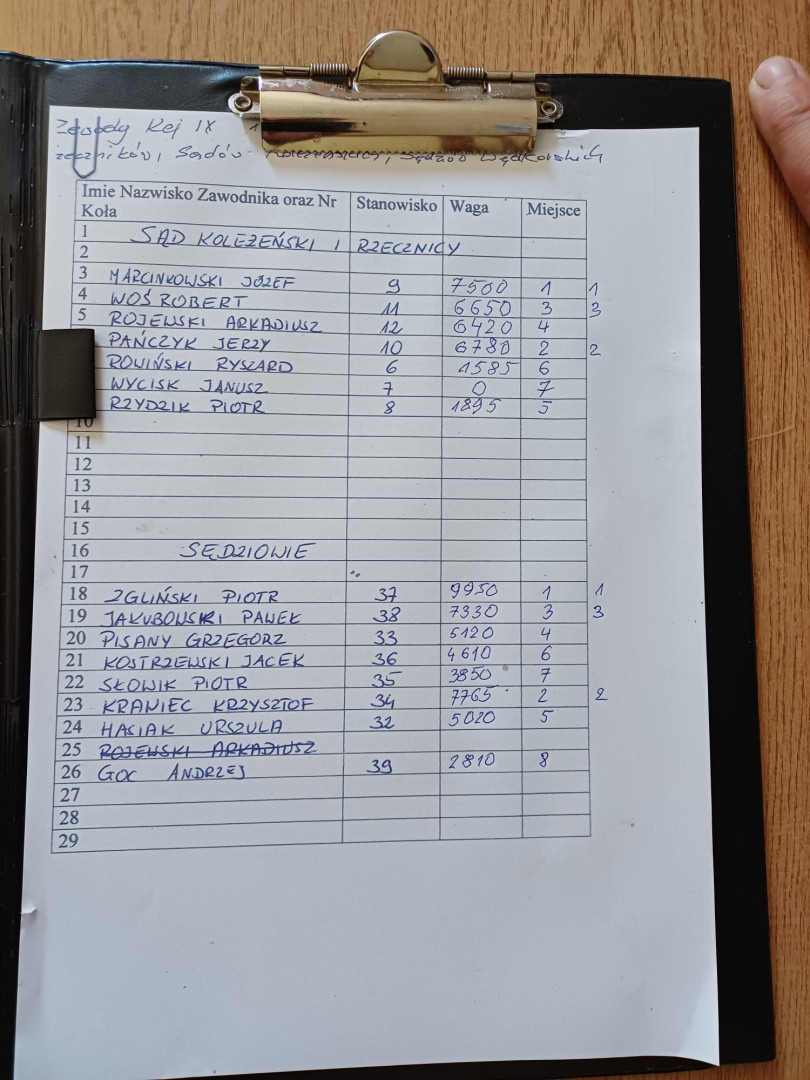 Zawody Rej IX
Sądów Koleżeńskich, Sędziów Wędkarskich
Imie Nazwisko Zawodnika oraz Nr Koła Stanowisko Waga Miejsce
1 SĄD KOLEŻEŃSKI I RZECZNICY
2
3 MARCINKOWSKI JÓZEF 9 7500 1 1
4 WOŚ ROBERT 11 6650 3 3
5 ROJEWSKI ARKADIUSZ 12 6420 4
PAŃCZYK JERZY 10 6780 2 2
ROWIŃSKI RYSZARD 6 1585 6
WYCISK JANUSZ 7 0 7
RZYDZIK PIOTR 8 1895 5
10
11
12
13
14
15
16 SĘDZIOWIE
17
18 ZGLIŃSKI PIOTR 37 9950 1 1
19 JAKUBOWSKI PAWEŁ 38 7330 3 3
20 PISANY GRZEGORZ 33 5120 4
21 KOSTRZEWSKI JACEK 36 4610 6
22 SŁOWIK PIOTR 35 3850 7
23 KRAWIEC KRZYSZTOF 34 7765 2 2
24 HASIAK URSZULA 32 5020 5
25 ROJEWSKI ARKADIUSZ
26 GOC ANDRZEJ 39 2810 8
27
28
29